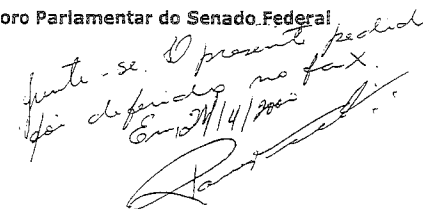 oro Parlamentar do Senado Federal
junte-se. O presente pedido
foi deferido no fax.
Em, 27/4/2000